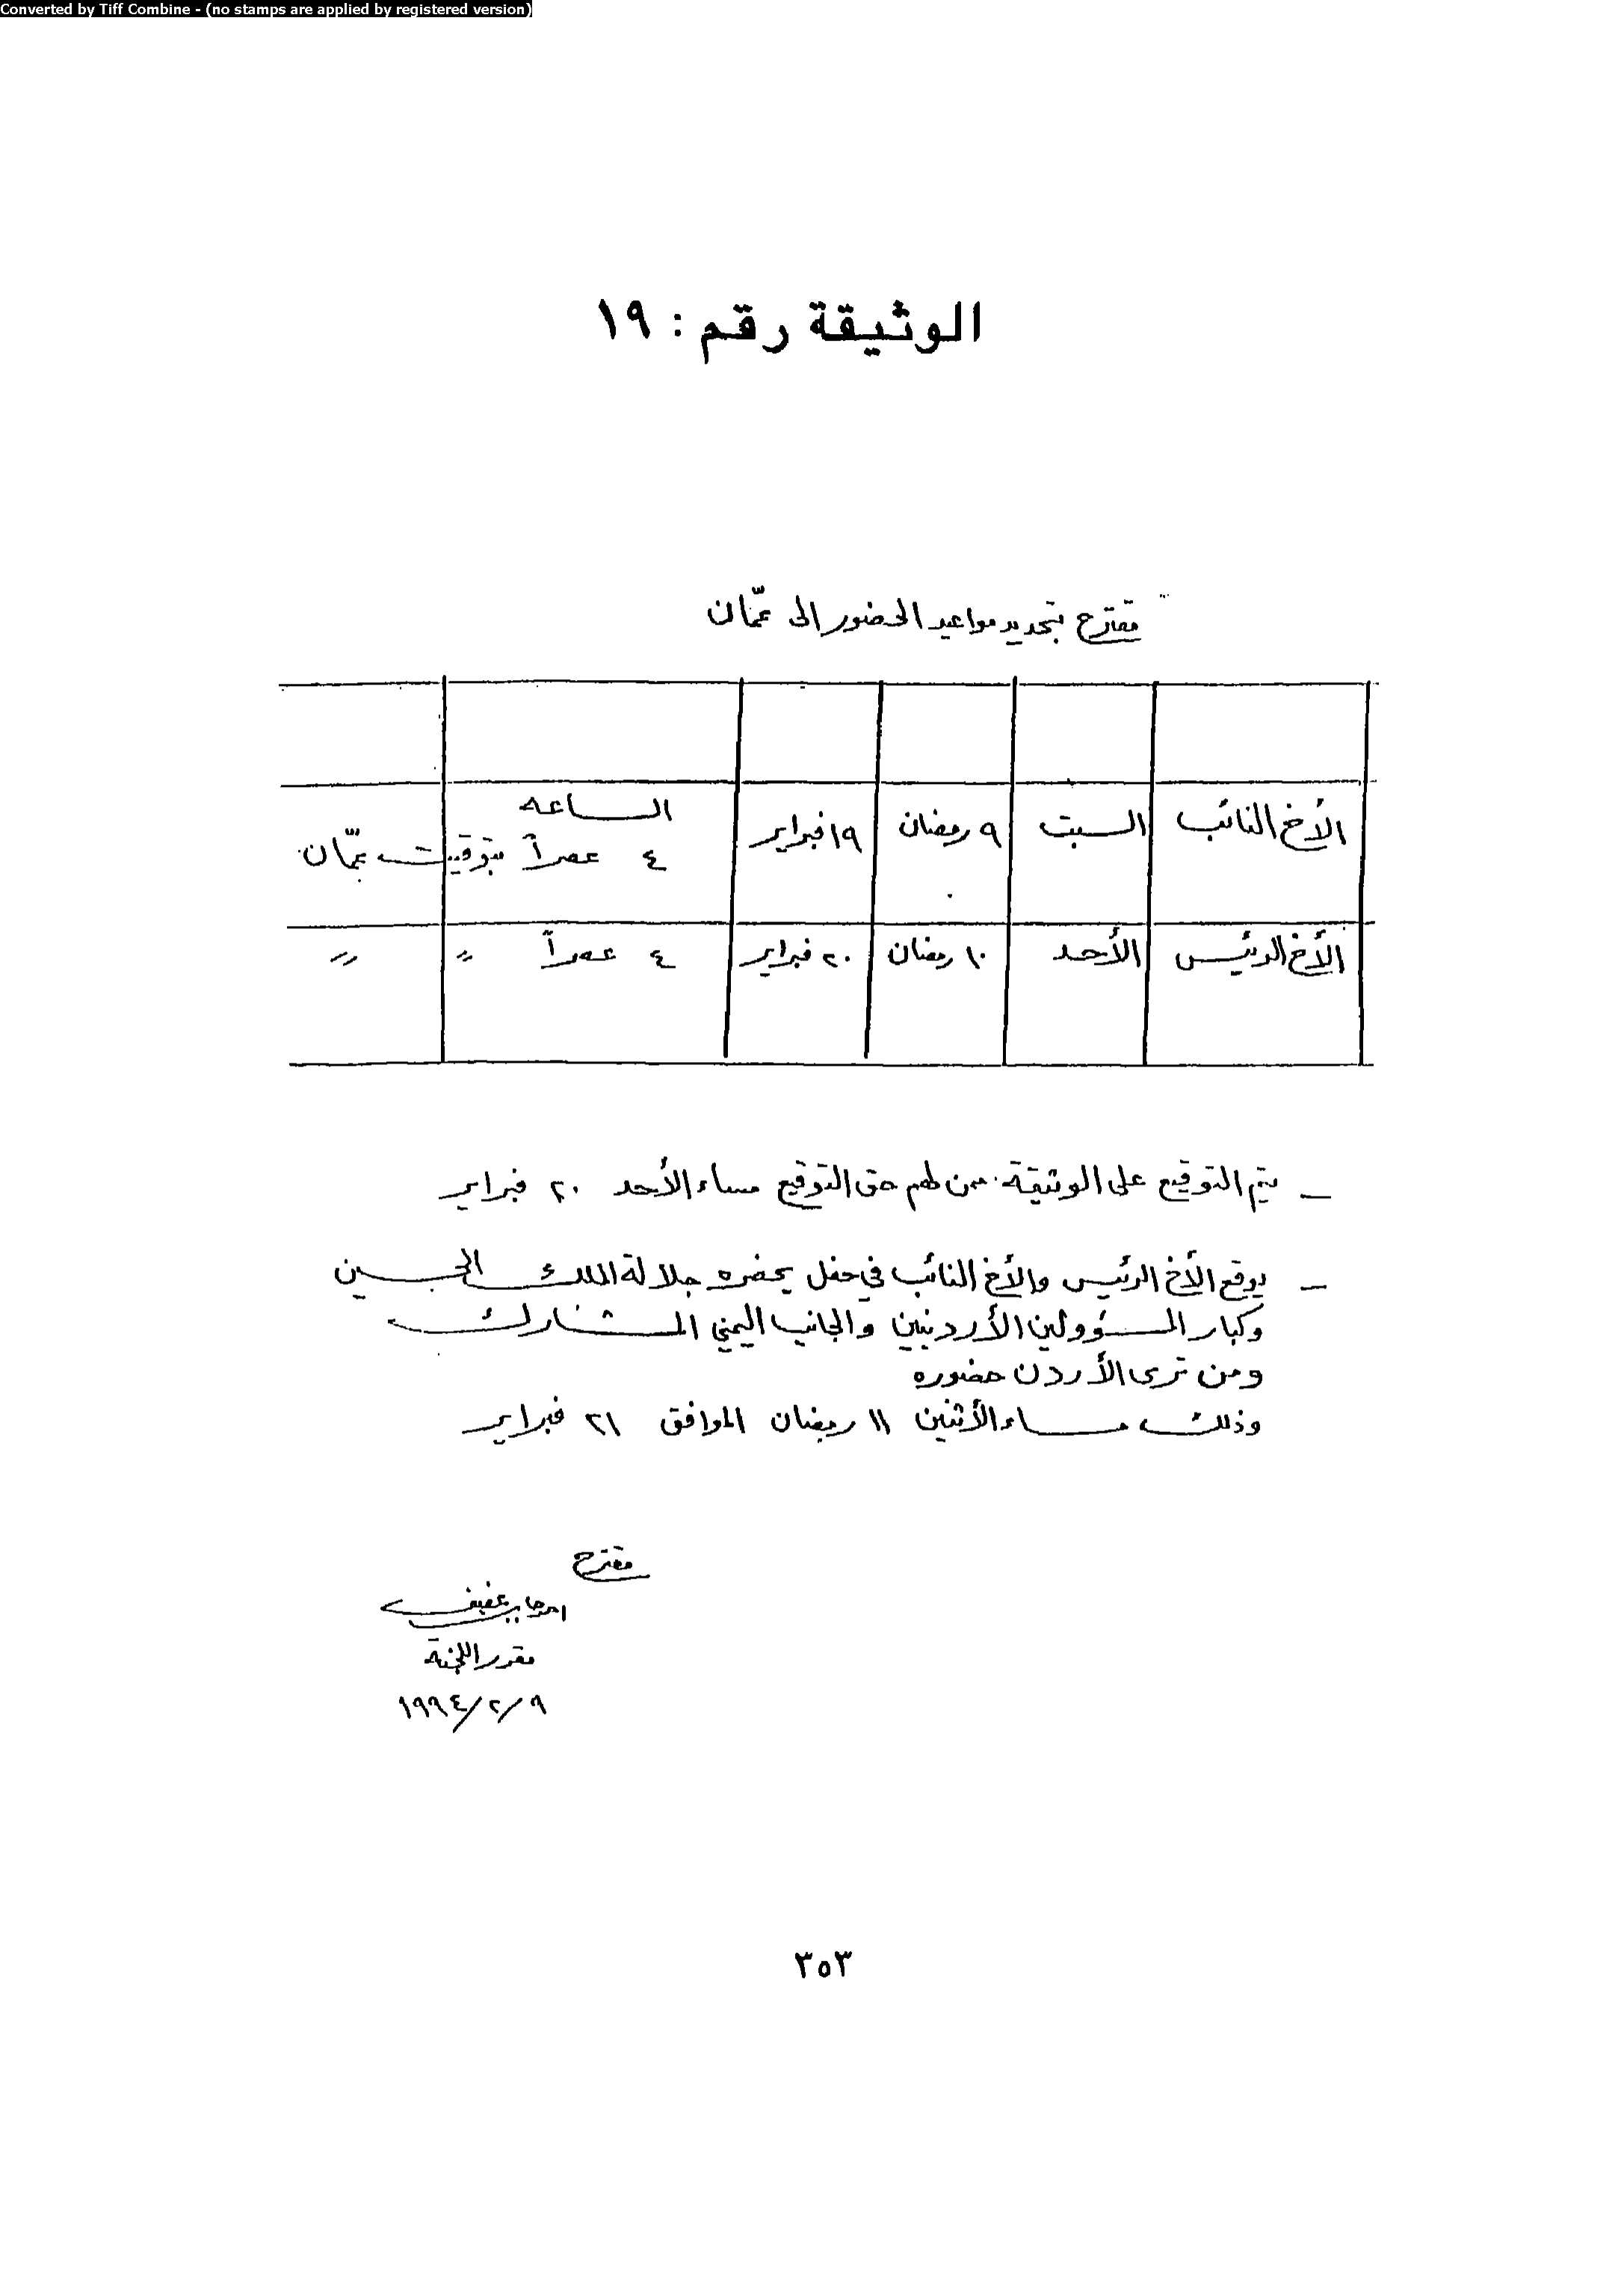 Converted by Tiff Combine - (no stamps are applied by registered version)
الوثيقة رقم : ١٩
مقترح بتحديد مواعيد الحضور الى عمّان
الأخ النائب السبت ٩ رمضان ١٩ فبراير الساعه
٤ عصراً بتوقيت عمّان
الأخ الرئيس الأحد ١٠ رمضان ٢٠ فبراير ٤ عصراً " "
_ يتم التوقيع على الوثيقة من لهم حق التوقيع مساء الأحد ٢٠ فبراير
_ يوقع الأخ الرئيس والأخ النائب في حفل يحضره جلالة الملك الحسين
وكبار المسؤولين الأردنيين والجانب اليمني المشارك
ومن ترى الأردن حضوره
وذلك مساء الأثنين ١١ رمضان الموافق ٢١ فبراير
مقترح
احمد جابر عفيف
مقرر اللجنة
١٩٩٤/٢/٩
٣٥٣